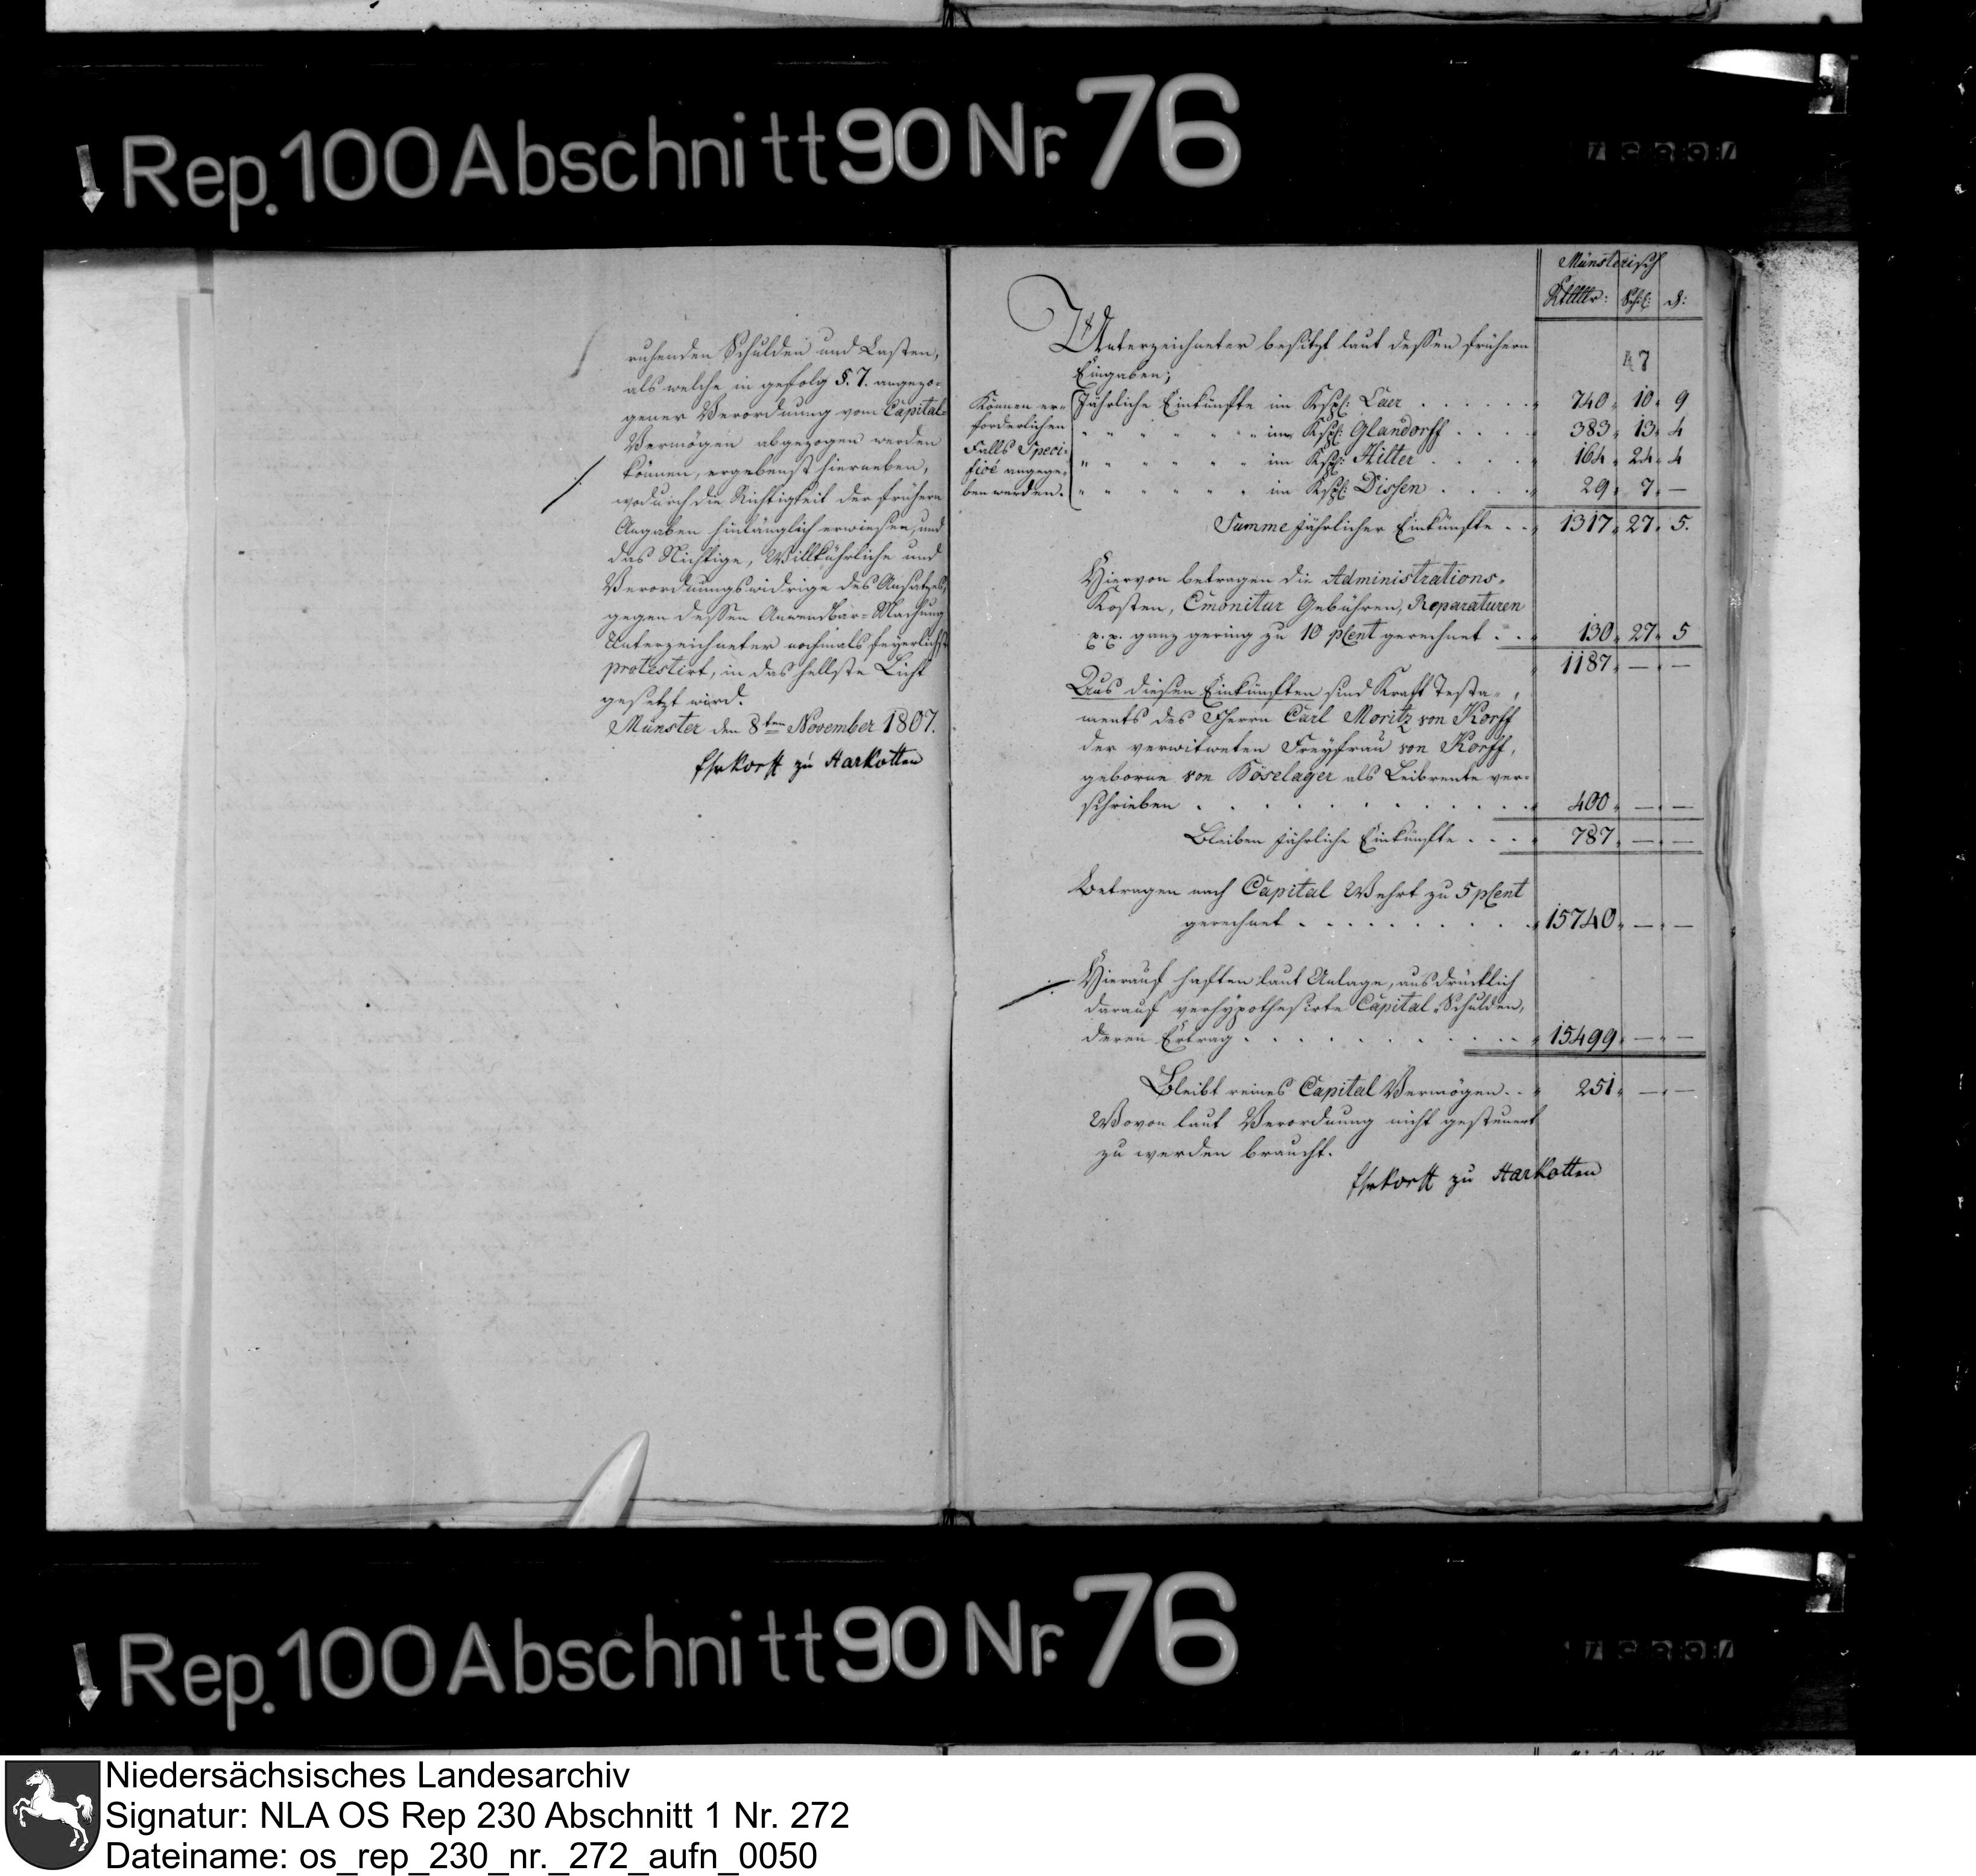 Rep. 100 Abschnitt 90 Nr. 76
ruhenden Schulden und Lasten,
als welche in gefolg §. 7. angezo-
gener Verordnung vom Capital-
Vermögen abgezogen werden
können, ergebenst hierneben,
wodurch die Richtigkeit der frühern
Angaben hinlänglich erwiesen, und
das Nichtige, Willkührliche und
Verordnungswidrige des Ansatzes,
gegen dessen Anwendbar-Machung
Unterzeichneter nochmals feyerlichst
protestirt, in das hellste Licht
gesetzt wird.
Münster den 8ten November 1807.
FhrKorff zu Harkotten
Münsterisch
Rthlr: Schl: d:
47
Unterzeichneter besitzt laut dessen frühern
Eingaben;
Können er-
forderlichen
Falls Speci-
fice angege-
ben werden.
Jährliche Einkünfte im Kspl: Laer . . . . . . 740 10 9
" " " " " " im Kspl: Glandorff . . . . 383 13 4
" " " " " " im Kspl: Hilter . . . . 164 24 4
" " " " " " im Kspl: Dissen . . . . 29 7 —
Summe jährlicher Einkünfte . . 1317 27 5.
Hiervon betragen die Administrations-
Kosten, Emonitur Gebühren, Reparaturen
p. p. ganz gering zu 10 pCent gerechnet . . 130 27 5
1187 — —
Aus diesen Einkünften sind Kraft Testa-
ments des FHerrn Carl Moritz von Korff
der verwitweten Freyfrau von Korff,
geborne von Böselager als Leibrente ver-
schrieben . . . . . . . . . . 400 — —
Bleiben jährliche Einkünfte . . . 787 — —
Betragen nach Capital Wehrt zu 5 pCent
gerechnet . . . . . . . . 15740 — —
Hierauf haften laut Anlage, ausdrücklich
darauf verhypothesirte Capital-Schulden,
deren Ertrag . . . . . . . . . 15499 — —
Bleibt reines Capital Vermögen . . 251 — —
Wovon laut Verordnung nicht gesteuert
zu werden braucht.
FhrKorff zu Harkotten
Rep. 100 Abschnitt 90 Nr. 76
Niedersächsisches Landesarchiv
Signatur: NLA OS Rep 230 Abschnitt 1 Nr. 272
Dateiname: os_rep_230_nr._272_aufn_0050